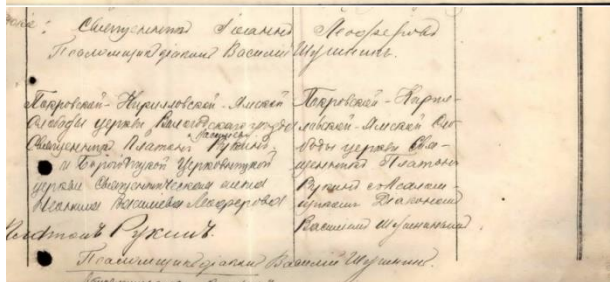 Священникъ Іоаннъ
Псаломщикъ діаконъ Василій Шушинъ.
Покровской-Кирилловской-Ямской
слободы церкви Вологодского уѣзда
Священникъ Платонъ Рукинъ
и Богородской Церковницкой
церкви Священническая жена
Васильева
Покровской-Кирил-
ловской-Ямской Сло-
боды церкви Свя-
щенникъ Платонъ
Рукинъ съ Псалом-
щикомъ Діакономъ
Василіемъ
Платонъ Рукинъ.
Псаломщикъ діаконъ Василій Шушинъ.